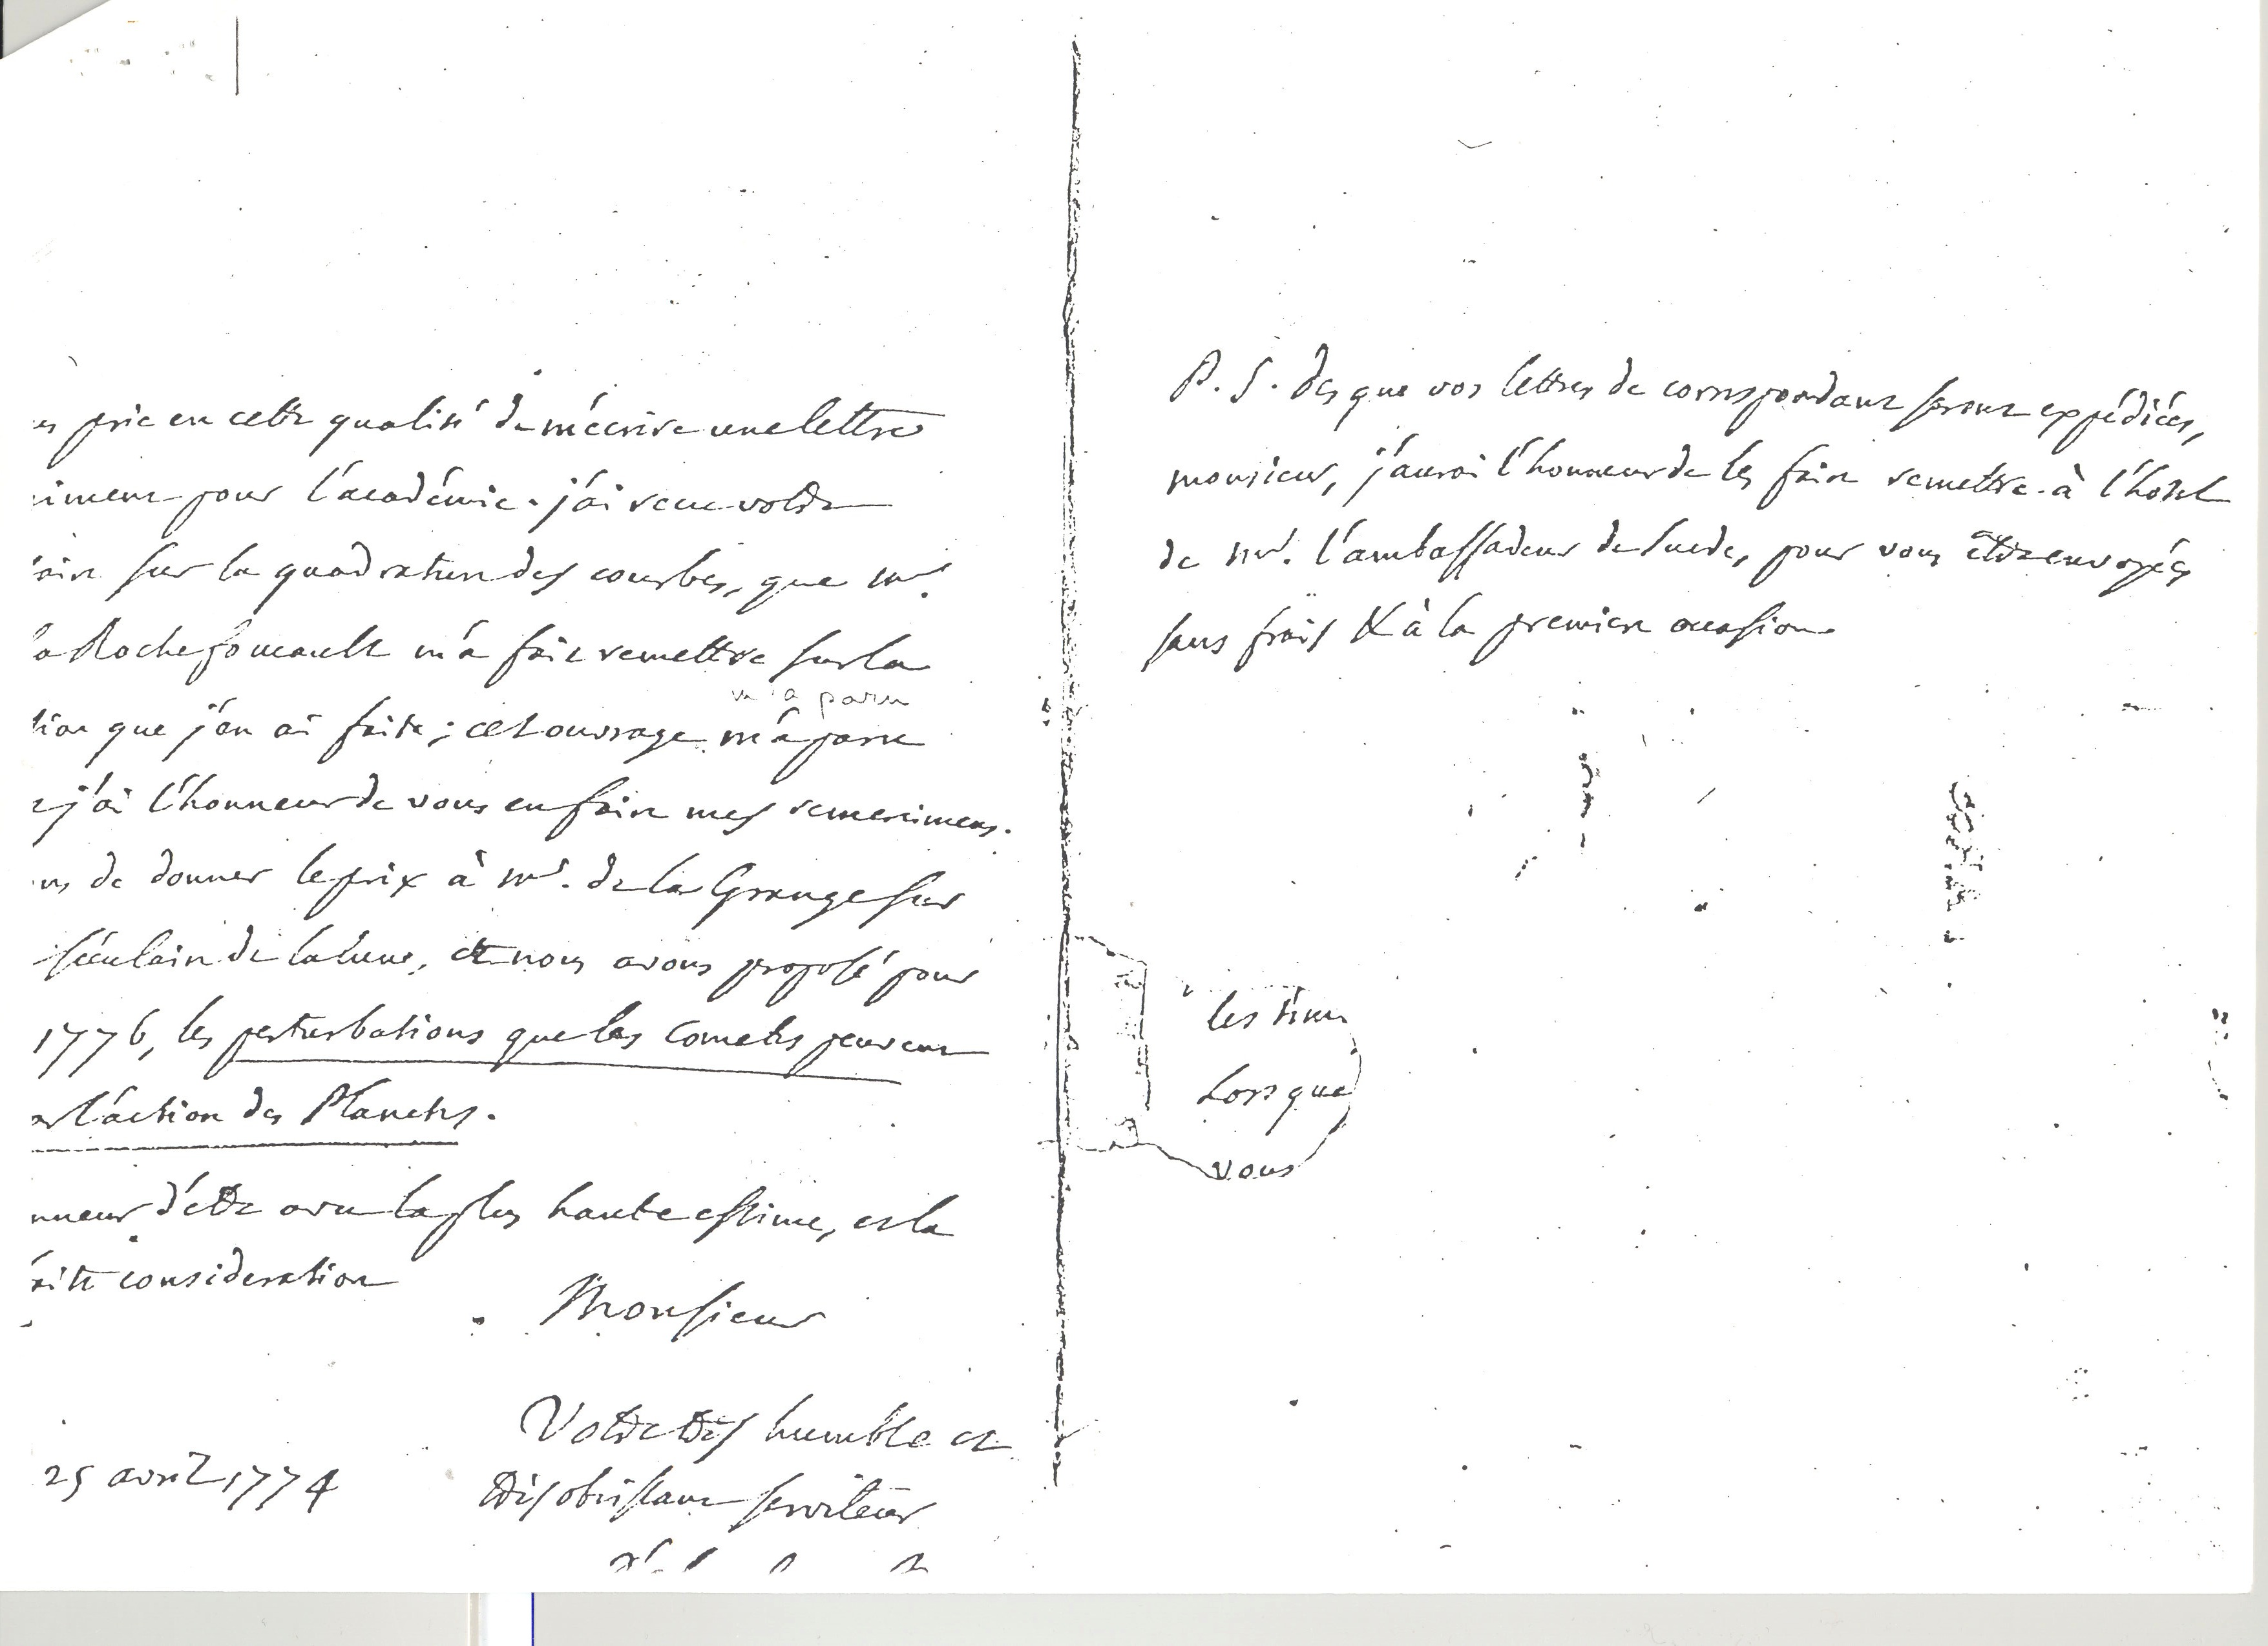 prie en cette qualité de m'écrire une lettre
pour l'académie. j'ai reçu votre
sur la quadrature des courbes, que mr.
la Rochefoucault m'a fait remettre sur la
que j'en ai faite; cet ouvrage m'a paru
m'a paru
j'ai l'honneur de vous en faire mes remercimens.
de donner le prix à mr. de la Grange sur
séculaire de la lune, et nous avons proposé pour
1776, les perturbations que les cometes peuvent
l'action des Planetes.
d'être avec la plus haute estime, et la
consideration
Monsieur
Votre très humble et
très obéissant serviteur
25 avril 1774
P. S. dès que vos lettres de correspondant seront expédiées,
monsieur, j'aurai l'honneur de les faire remettre à l'hotel
de mr. l'ambassadeur de Suede, pour vous être envoyées
sans frais & à la premiere occasion.
les
Lorsque
vous